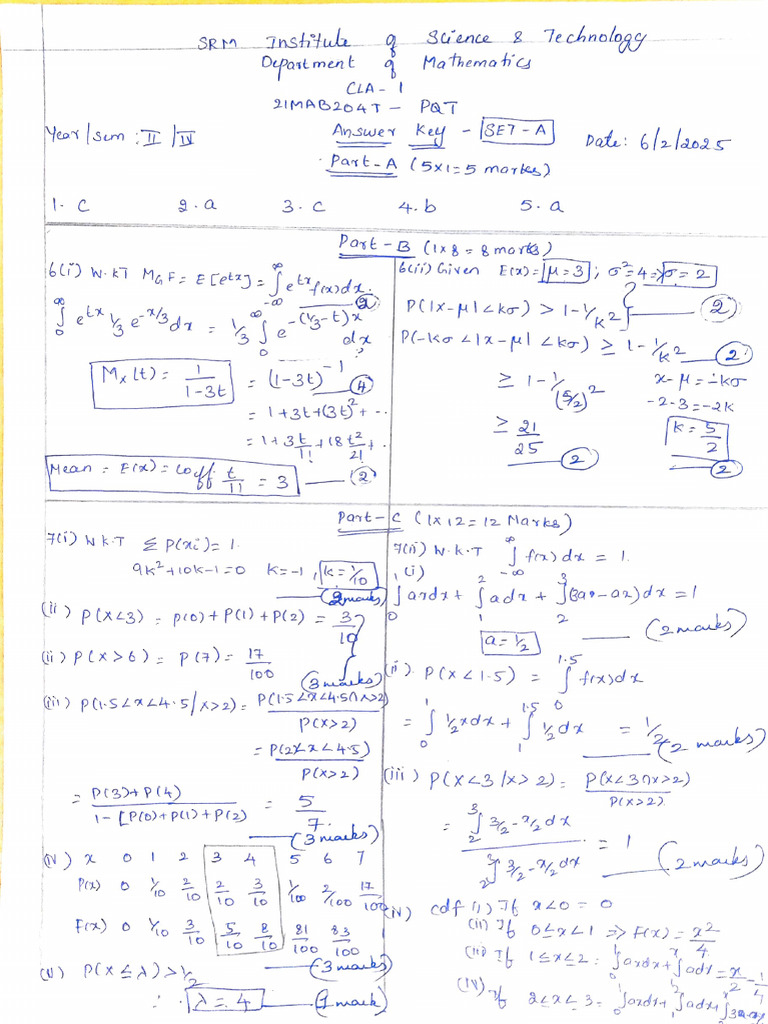 SRM Institute of Science & Technology
Department of Mathematics
CLA - 1
21MAB204T - PQT
Year/sem : II / IV
Answer Key - SET - A
Date: 6/2/2025
Part-A (5x1=5 marks)
1. C 2. a 3. C 4. b 5. a
Part-B (1x8=8 marks)
6(i) W.KT MGF = E[etx] = ∫_{-∞}^{∞} e^{tx} f(x) dx. (2)
∫_0^∞ e^{tx} 1/3 e^{-x/3} dx = 1/3 ∫_0^∞ e^{-(1/3-t)x} dx
Mx(t) = 1/(1-3t) = (1-3t)^{-1} (4)
= 1+3t+(3t)^2+..
= 1+3t/1!+18t^2/2!+.
Mean = E(x) = Coeff t/1! = 3 (2)
6(ii) Given E(x)= μ=3 ; σ²=4 ⇒ σ=2
P(|x-μ|<kσ) > 1-1/k² (2)
P(-kσ<|x-μ|<kσ) ≥ 1-1/k² (2)
≥ 1-1/(5/2)² x-μ=-kσ
-2-3=-2k
≥ 21/25 (2) k=5/2 (2)
Part-C (1x12=12 Marks)
7(i) W.K.T Σ P(xi)=1.
9k²+10k-1=0 k=-1, k=1/10
(2marks)
(ii) P(x<3) = p(0)+P(1)+P(2) = 3/10
(ii) P(x>6) = P(7) = 17/100
(3marks)
(iii) P(1.5<x<4.5/x>2) = P(1.5<x<4.5∩x>2)/P(x>2)
= P(2<x<4.5)/P(x>2)
= P(3)+P(4)/1-[P(0)+P(1)+P(2) = 5/7.
(3marks)
(iv) x 0 1 2 3 4 5 6 7
P(x) 0 1/10 2/10 2/10 3/10 1/100 2/100 17/100
F(x) 0 1/10 3/10 5/10 8/10 81/100 83/100 1
(3marks)
(v) P(x≤λ)>1/2
∴ λ=4 (1mark)
7(ii) W.K.T ∫_{-∞}^{∞} f(x) dx = 1.
(i)
∫_0^1 axdx + ∫_1^2 adx + ∫_2^3 (3a-ax)dx = 1
a=1/2 (2marks)
(ii). P(x<1.5) = ∫_0^{1.5} f(x)dx
= ∫_0^1 1/2 xdx + ∫_1^{1.5} 1/2 dx = 1/2 (2 marks)
(iii) P(x<3/x>2) = P(x<3∩x>2)/P(x>2)
= ∫_2^3 3/2-x/2 dx / ∫_2^3 3/2-x/2 dx = 1 (2marks)
(iv) cdf (i) If x<0 = 0
(ii) If 0≤x<1 ⇒ F(x) = x²/4
(iii) If 1≤x≤2: ∫_0^1 axdx+∫_1^x adx = x/2-1/4
(iv). If 2≤x≤3 = ∫_0^1 axdx+∫_1^2 adx+